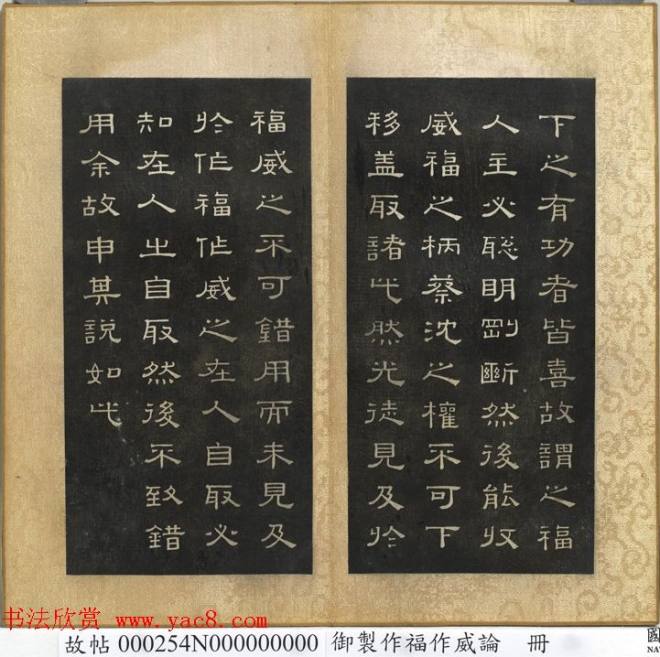 下之有功者皆喜故謂之福
人主必聡明剛斷然後能收
威福之柄蔡沈之權不可下
移盖取諸此然光徒見及於
福威之不可錯用而未見及
於作福作威之在人自取必
知在人之自取然後不致錯
用余故申其説如此
书法欣赏 www.yac8.com
故帖 000254N000000000 御製作福作威論 冊
國
NA